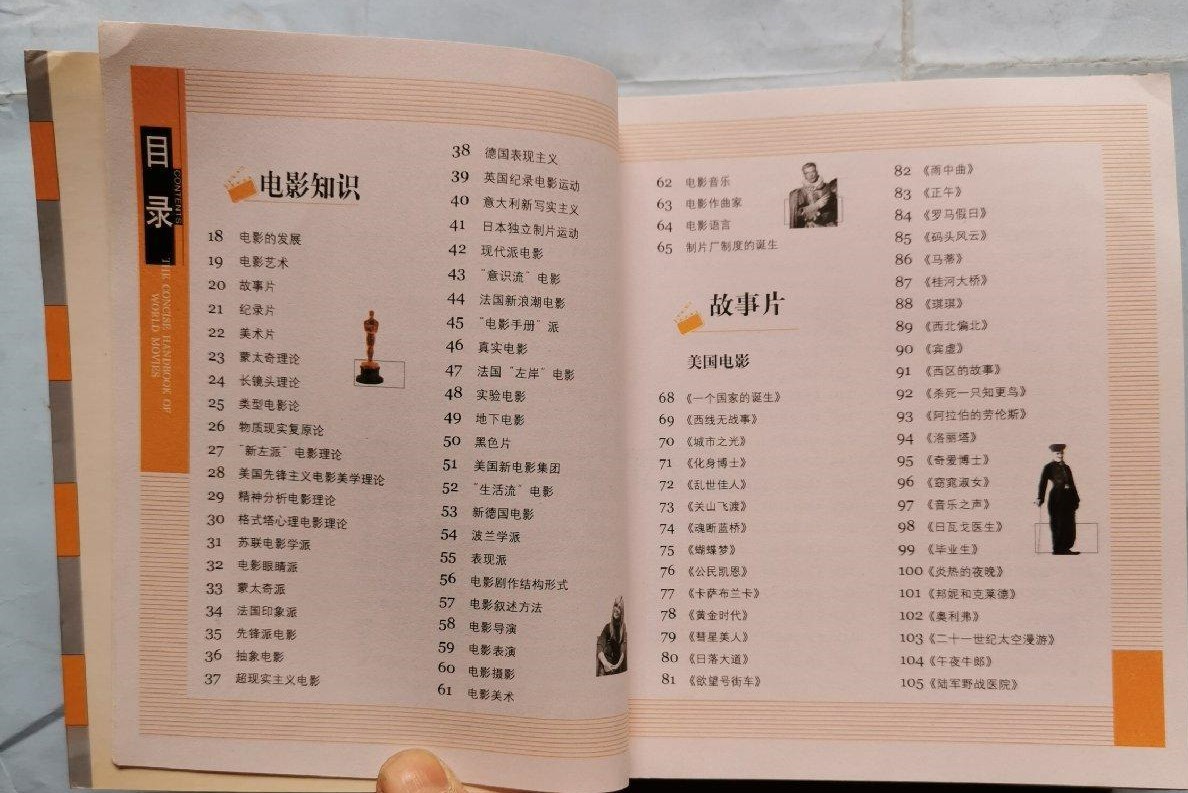 目录
CONTENTS
THE CONCISE HANDBOOK OF
WORLD MOVIES
电影知识
18 电影的发展
19 电影艺术
20 故事片
21 纪录片
22 美术片
23 蒙太奇理论
24 长镜头理论
25 类型电影论
26 物质现实复原论
27 “新左派”电影理论
28 美国先锋主义电影美学理论
29 精神分析电影理论
30 格式塔心理电影理论
31 苏联电影学派
32 电影眼睛派
33 蒙太奇派
34 法国印象派
35 先锋派电影
36 抽象电影
37 超现实主义电影
38 德国表现主义
39 英国纪录电影运动
40 意大利新写实主义
41 日本独立制片运动
42 现代派电影
43 “意识流”电影
44 法国新浪潮电影
45 “电影手册”派
46 真实电影
47 法国“左岸”电影
48 实验电影
49 地下电影
50 黑色片
51 美国新电影集团
52 “生活流”电影
53 新德国电影
54 波兰学派
55 表现派
56 电影剧作结构形式
57 电影叙述方法
58 电影导演
59 电影表演
60 电影摄影
61 电影美术
62 电影音乐
63 电影作曲家
64 电影语言
65 制片厂制度的诞生
故事片
美国电影
68 《一个国家的诞生》
69 《西线无战事》
70 《城市之光》
71 《化身博士》
72 《乱世佳人》
73 《关山飞渡》
74 《魂断蓝桥》
75 《蝴蝶梦》
76 《公民凯恩》
77 《卡萨布兰卡》
78 《黄金时代》
79 《彗星美人》
80 《日落大道》
81 《欲望号街车》
82 《雨中曲》
83 《正午》
84 《罗马假日》
85 《码头风云》
86 《马蒂》
87 《桂河大桥》
88 《琪琪》
89 《西北偏北》
90 《宾虚》
91 《西区的故事》
92 《杀死一只知更鸟》
93 《阿拉伯的劳伦斯》
94 《洛丽塔》
95 《奇爱博士》
96 《窈窕淑女》
97 《音乐之声》
98 《日瓦戈医生》
99 《毕业生》
100 《炎热的夜晚》
101 《邦妮和克莱德》
102 《奥利弗》
103 《二十一世纪太空漫游》
104 《午夜牛郎》
105 《陆军野战医院》